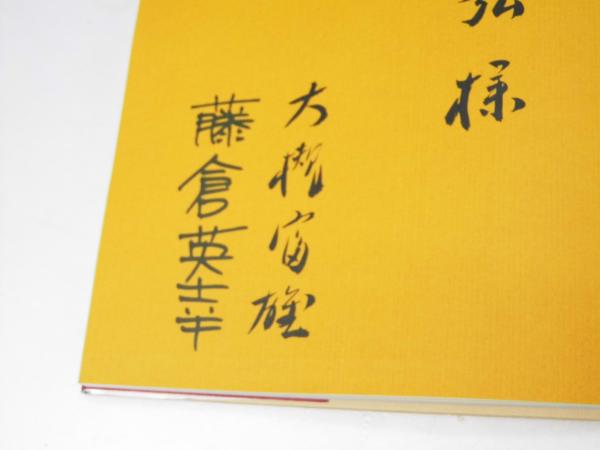 弘 様
大槻富雄
藤倉英幸